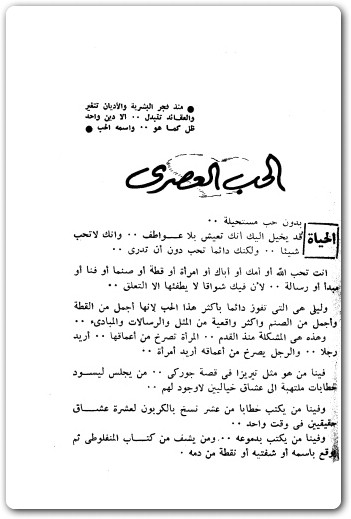 ● منذ فجر البشرية والأديان تتغير
والعقائد تتبدل ٠٠ الا دين واحد
ظل كما هو ٠٠ واسمه الحب ●
الحب العصرى
الحياة
بدون حب مستحيلة ٠٠
قد يخيل اليك أنك تعيش بلا عـواطف ٠٠ وانك لاتحب
شيئا ٠٠ ولكنك دائما تحب دون أن تدرى ٠٠
انت تحب الله أو أمك أو أباك أو امرأة أو قطة أو صنما أو فنا أو
مبدأ أو رسالة ٠٠ لأن فيك شواقا لا يطفئها الا التعلق ٠٠
وليلى هى التى تفوز دائما بأكثر هذا الحب لانها أجمل من القطة
وأجمل من الصنم واكثر واقعية من المثل والرسالات والمبادىء ٠٠
وهذه هى المشكلة منذ القدم ٠٠ المرأة تصرخ من أعماقها ٠٠ أريد
رجلا ٠٠ والرجل يصرخ من أعماقه أريد أمرأة ٠٠
فينا من هو مثل تيريزا فى قصة جوركى ٠٠ من يجلس ليسـود
خطابات ملتهبة الى عشاق خياليين لاوجود لهم ٠٠
وفينا من يكتب خطابا من عشر نسخ بالكربون لعشرة عشـاق
حقيقيين فى وقت واحد ٠٠
وفينا من يكتب بدموعه ٠٠ ومن ينسف من كتـاب المنفلوطى ثم
يوقع باسمه أو شفتيه أو نقطة من دمه ٠